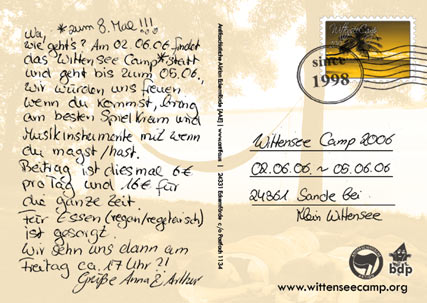 Way, *zum 8. Mal !!!
wie geht's? Am 02.06.06 findet
das Wittensee Camp* statt
und geht bis zum 05.06.,
wir würden uns freuen
wenn du kommst, bring
am besten Spielkram und
Musikinstrumente mit wenn
du magst/hast.
Beitrag ist diesmal 6€
pro Tag und 16€ für
die ganze Zeit.
Für Essen (vegan/vegetarisch)
ist gesorgt.
Wir sehn uns dann am
Freitag ca. 17 Uhr ?!
Grüße Anna & Arthur
Antifaschistische Aktion Eckernförde [AAE] | | 24331 Eckernförde c/o Postfach 1134
Wittensee Camp
since
1998
Wittensee Camp 2006
02.06.06. ~ 05.06.06
24361 Sande bei
Klein Wittensee
bdp
www.wittenseecamp.org